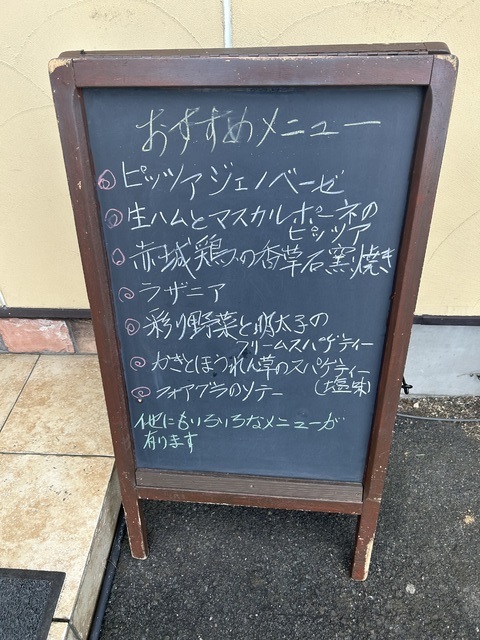 おすすめメニュー
ピッツァジェノベーゼ
生ハムとマスカルポーネの
ピッツア
赤城鶏の香草石窯焼き
ラザニア
彩り野菜と明太子の
クリームスパゲティー
かきとほうれん草のスパゲティー
(塩味)
フォアグラのソテー
他にもいろいろなメニューが
有ります